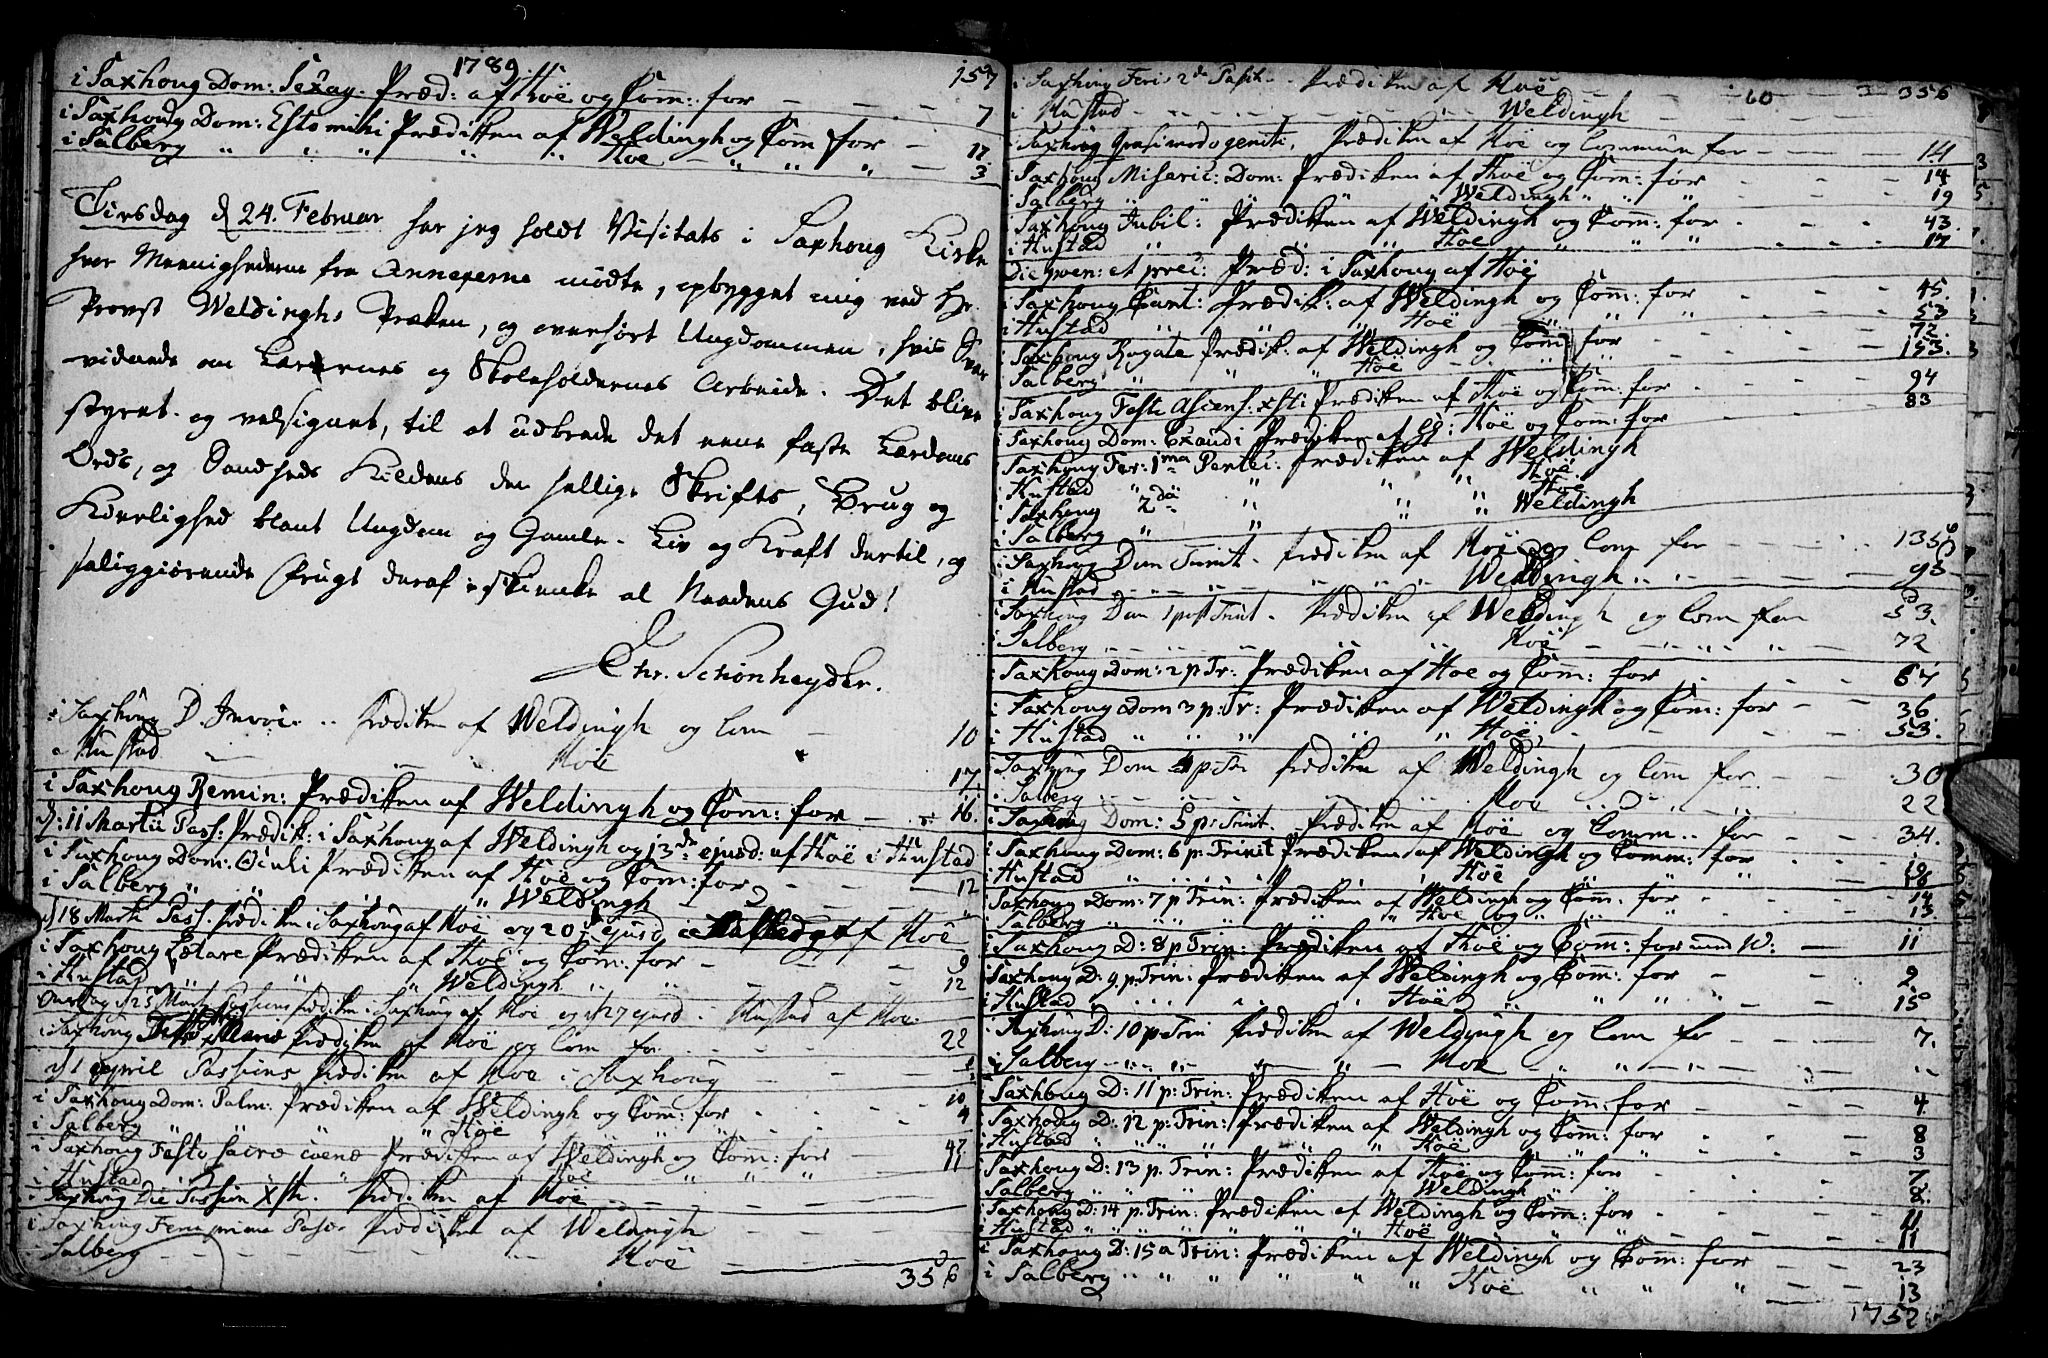 1789
157
i Saxhoug Dom: Sexag. Præd: af Hoë og Com: for — 7
i Saxhoug Dom: Estomihi Prædiken af Weldingh og Com for — 17
i Salberg " " " " " Hoë — " " " — 3
Tirsdag d 24. Februar har jeg holdt Visitats i Saxhoug Kirke
hvor Meenighederne fra Annexerne mødte, opbygget mig ved Hr.
Provst Weldinghs Præken, og overhørt Ungdommen, hvis Svar
vidnede om Lærernes og Skoleholdernes Arbeide. Det blive
styret og velsignet, til at udbrede det eene faste Lærdoms
Ords, og Sandheds Kildens den hellige Skrifts, Brug og
Kierlighed blant Ungdom og Gamle. Liv og Kraft dertil, og
saliggiørende Frugt deraf skienke al Naadens Gud!
Chr. Schönheyder.
i Saxhoug D. Invoc. Prædiken af Weldingh og Com — 10
i Hustad — Hoë
i Saxhoug Remin: Prædiken af Weldingh og Com: for — 16.
d: 11 Martii Pass: Prædik: i Saxhoug af Weldingh og 13de ejusd: af Hoë i Hustad
i Saxhoug Dom: Oculi Prædiken af Hoë og Com: for — 12
i Salberg " " " Weldingh
d 18 Martii Pass. Prædiken i Saxhoug af Hoë og 20 ejusd i Hustad af Hoë
i Saxhoug Lætare Prædiken af Hoë og Com: for — 9
i Hustad " " " Weldingh " " — 12
Onsdag d 25 Martii Passions Prædiken i Saxhoug af Hoë og d 27 ejusd i Hustad af Hoë.
i Saxhoug Festo Mariæ Prædiken af Hoë og Com for — 22
d 1 April Passions Prædiken af Hoë i Saxhoug
i Saxhoug Dom: Palm: Prædiken af Weldingh og Com: for — 10
i Salberg " " Hoë — 4
i Saxhoug Festo sacræ coenæ Prædiken af Weldingh og Com: for — 47
i Hustad " " Hoë " " " — 11
i Saxhoug Die Passion Xsti. Prædiken af Hoë
i Saxhoug Feria prima Pasc Prædiken af Weldingh
Salberg — Hoë
356
i Saxhoug Feria 2da Pasch — Prædiken af Hoë 356
i Hustad — Weldingh
i Saxhoug Quasimodogeniti, Prædiken af Hoë og Commun for — 14
i Saxhoug Miseric: Dom: Prædiken af Hoë og Com: for — 14
i Salberg " " Weldingh " " — 19
i Saxhoug Jubil: Prædiken af Weldingh og Com: for — 43.
i Hustad " " " Hoë " " " — 17
Die poen: et prec: Præd: i Saxhoug af Hoë
i Saxhoug Cant: Prædik: af Weldingh og Com: for — 45.
i Hustad " " " Hoë " " — 53
i Saxhoug Rogate Prædik: af Weldingh og Com: for — 72.
i Salberg " " " Hoë — 153.
i Saxhoug Festi Ascens: Xsti Prædiken af Hoë og Com: for — 94
i Saxhoug Dom: Exaudi Prædiken af Hoë og Com: for — 83
i Saxhoug Fer: 1ma Pentec: Prædiken af Weldingh
i Hustad " " " " Hoë
i Saxhoug 2da " " " Hoë
i Salberg " " " " Weldingh
i Saxhoug Dom Trinit. Prædiken af Hoë og Com for — 135
i Hustad — Weldingh — 93
i Saxhoug Dom 1 post Trinit. Prædiken af Weldingh og Com for 53.
i Salberg — Hoë — 72
i Saxhoug Dom: 2 p Tr: Prædiken af Hoë og Com: for — 67
i Saxhoug Dom 3 p: Tr: Prædiken af Weldingh og Com: for — 36.
i Hustad " " " " Hoë, — 53.
i Saxhoug Dom 4 p Tr Prædiken af Weldingh og Com for — 30
i Salberg — Hoë — 22
i Saxhoug Dom: 5 p: Trinit. Prædiken af Hoë og Comm. for — 34.
i Saxhoug Dom: 6 p: Trinit Prædiken af Weldingh og Comm: for — 19
i Hustad " " " Hoë " " — 16
i Saxhoug Dom: 7 p Trin: Prædiken af Weldingh og Com: for — 14
i Salberg " " " Hoë og " " — 13.
i Saxhoug D: 8 p Trin: Prædiken af Hoë og Com: for med W: — 11
i Saxhoug D: 9 p: Trin: Prædiken af Weldingh og Com: for — 9
i Hustad " " " Hoë " " " — 15
i Saxhoug D: 10 p Trin Prædiken af Weldingh og Com for — 7.
i Salberg — Hoë
i Saxhoug D: 11 p: Trin: Prædiken af Hoë og Com: for — 4
i Saxhoug D: 12 p: Trin: Prædiken af Weldingh og Com: for — 8
i Hustad " " " " Hoë " " — 3
i Saxhoug D: 13 p: Trin: Prædiken af Hoë og Com: for — 7
i Salberg " " " Weldingh " " — 8.
i Saxhoug D: 14 p: Trin: Prædiken af Weldingh og Com: for — 11
i Hustad " " " " Hoë " " — 11
i Saxhoug D: 15 a Trin: Prædiken af Weldingh og Com: for — 23
i Salberg " " " " Hoë " " " — 13
1752